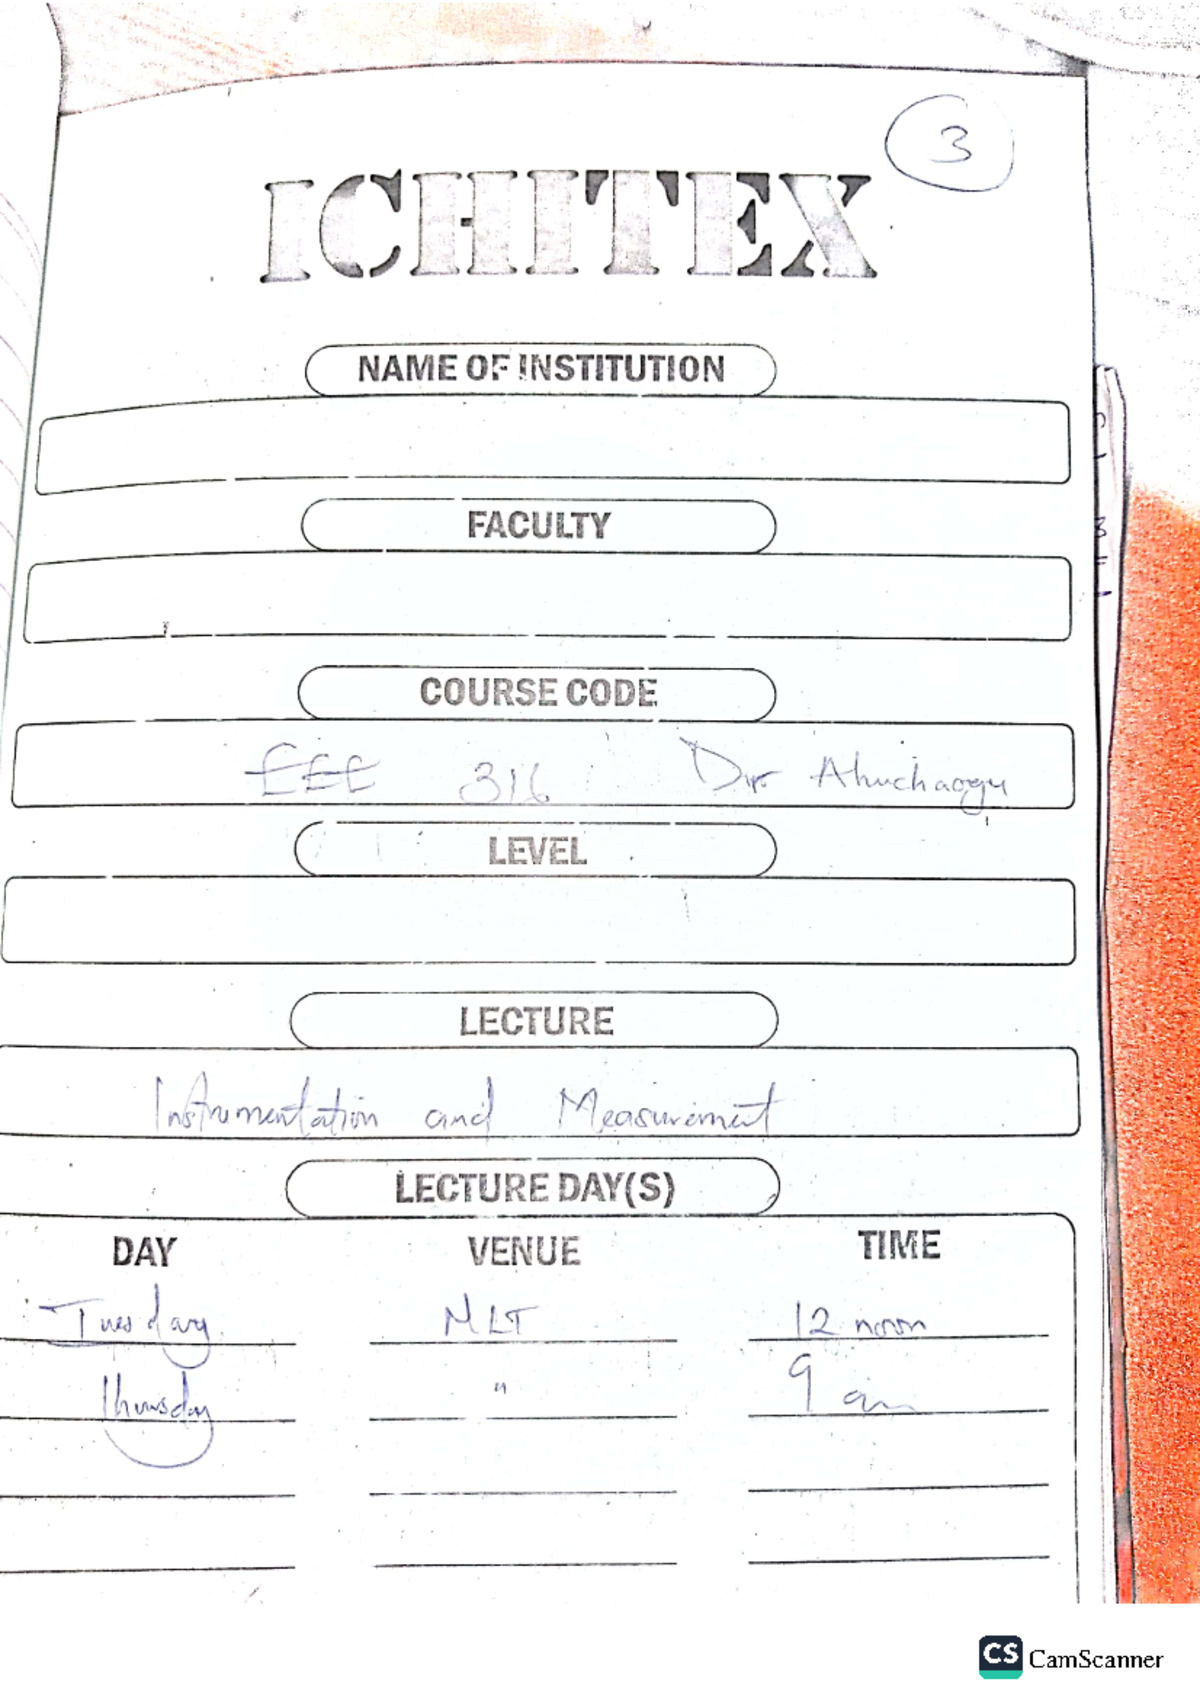 3
ICHITEX
NAME OF INSTITUTION
FACULTY
COURSE CODE
EEE 316 Dr Ahuchaogu
LEVEL
LECTURE
Instrumentation and Measurement
LECTURE DAY(S)
DAY VENUE TIME
Tuesday MLT 12 noon
Thursday " 9 am
CS CamScanner